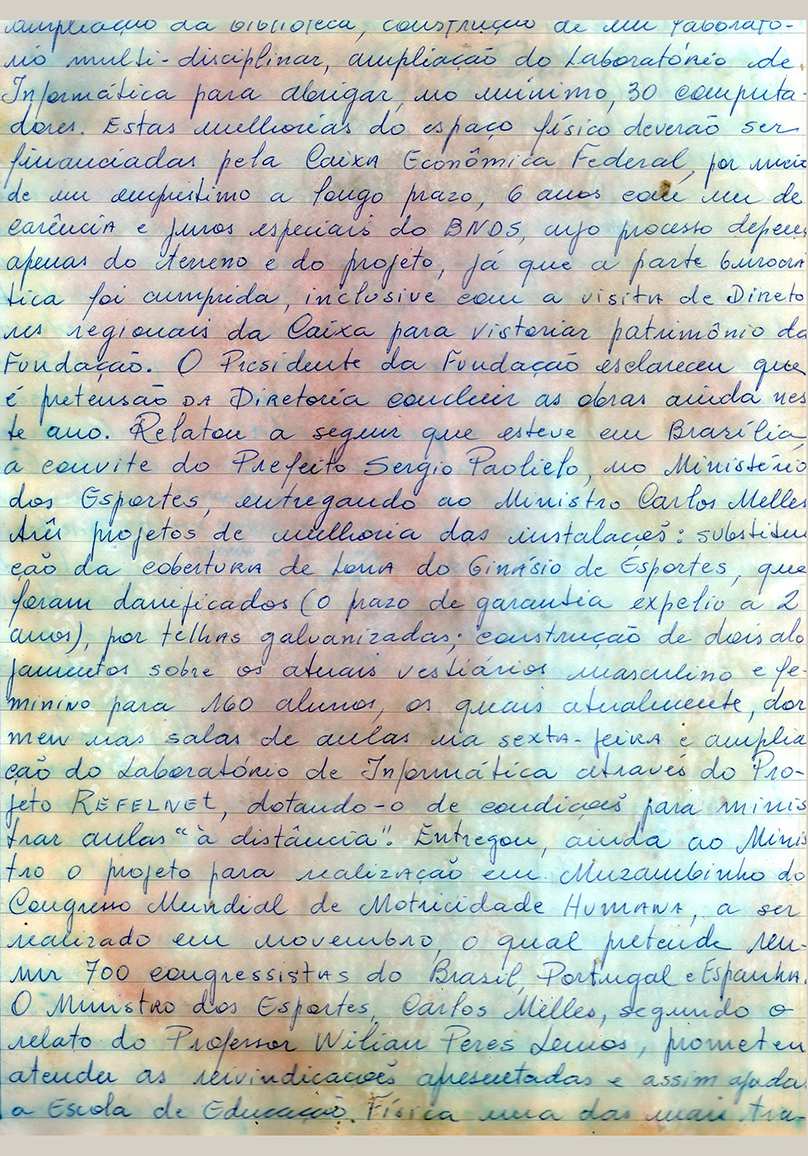 ampliação da biblioteca, construção de um laborató-
rio multi-disciplinar, ampliação do Laboratório de
Informática para abrigar, no mínimo, 30 computa-
dores. Estas melhorias do espaço físico deverão ser
financiadas pela Caixa Econômica Federal, por meio
de um empréstimo a longo prazo, 6 anos com um de
carência e juros especiais do BNDS, cujo processo depende
apenas do terreno e do projeto, já que a parte burocrá
tica foi cumprida, inclusive com a visita de Direto
res regionais da Caixa para vistoriar patrimônio da
Fundação. O Presidente da Fundação esclareceu que
é pretensão da Diretoria concluir as obras ainda nes
te ano. Relatou a seguir que esteve em Brazília,
a convite do Prefeito Sergio Paolielo, no Ministério
dos Esportes, entregando ao Ministro Carlos Melles
três projetos de melhoria das instalações: substitui
ção da cobertura de Lona do Ginásio de Esportes, que
foram danificados (o prazo de garantia expeliu a 2
anos), por telhas galvanizadas; construção de dois alo
jamentos sobre os atuais vestiários masculino e fe-
minino para 160 alunos, os quais atualmente, dor
mem nas salas de aulas na sexta-feira e amplia
ção do Laboratório de Informática através do Pro-
jeto REFELNET, dotando-o de condições para minis
trar aulas "à distância". Entregou, ainda ao Minis
tro o projeto para realização em Muzambinho do
Congresso Mundial de Motricidade Humana, a ser
realizado em novembro, o qual pretende reu-
nir 700 congressistas do Brasil, Portugal e Espanha.
O Ministro dos Esportes, Carlos Melles, segundo o
relato do Professor Wilian Peres Lemos, prometeu
atender as reivindicações apresentadas e assim ajuda
a Escola de Educação Física uma das mais tra-